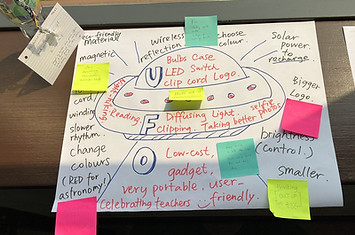 eco-friendly
material
magnetic
Wireless
reflection
choose
colour.
Solar
power
to
recharge.
Bulbs Case
LED Switch
clip cord Logo.
U
Bigger
Logo.
cord
winding
slower
rhythm.
Reading.
F
Diffusing Light.
selfie
clipping. Taking better photos
change
colours
(RED for
astronomy!)
O
Low-cost,
gadget,
very portable, user-
friendly.
celebrating teachers
brightness
(control.)
smaller.